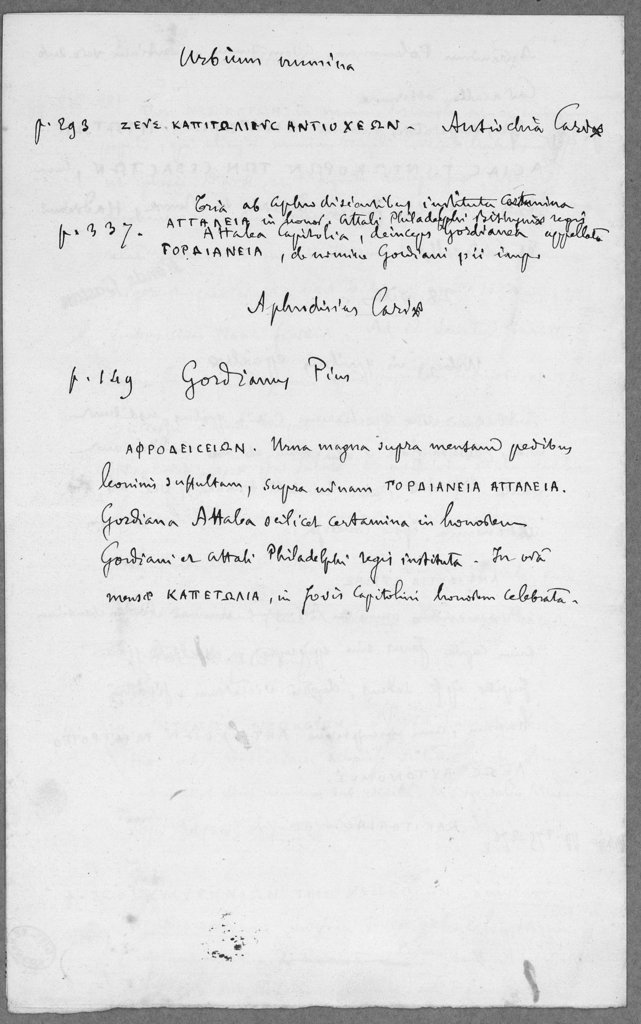 Urbium numina
p. 293 ΖΕΥΣ. ΚΑΠΙΤΩΛΙΕΥC ΑΝΤΙΟΧΕΩΝ. Antiochia Cariæ
Tria ab Aphrodisiensibus instituta certamina
ΑΤΤΑΛΕΙΑ in honor. Attali Philadelphi Bithyniæ regis
p. 337. Attalea Capitolia, deinceps Gordianea appellata
ΓΟΡΔΙΑΝΕΙΑ, de nomine Gordiani pii imp.
Aphrodisias Cariæ
p. 149 Gordianus Pius
ΑΦΡΟΔΕΙCΕΙΩΝ. Urna magna supra mensam pedibus
leoninis suffultam, supra urnam ΓΟΡΔΙΑΝΕΙΑ ΑΤΤΑΛΕΙΑ.
Gordiana Attalea scilicet certamina in honorem
Gordiani et Attali Philadelphi regis instituta. In orâ
mensæ ΚΑΠΕΤΩΛΙΑ, in Jovis Capitolini honorem celebrata.